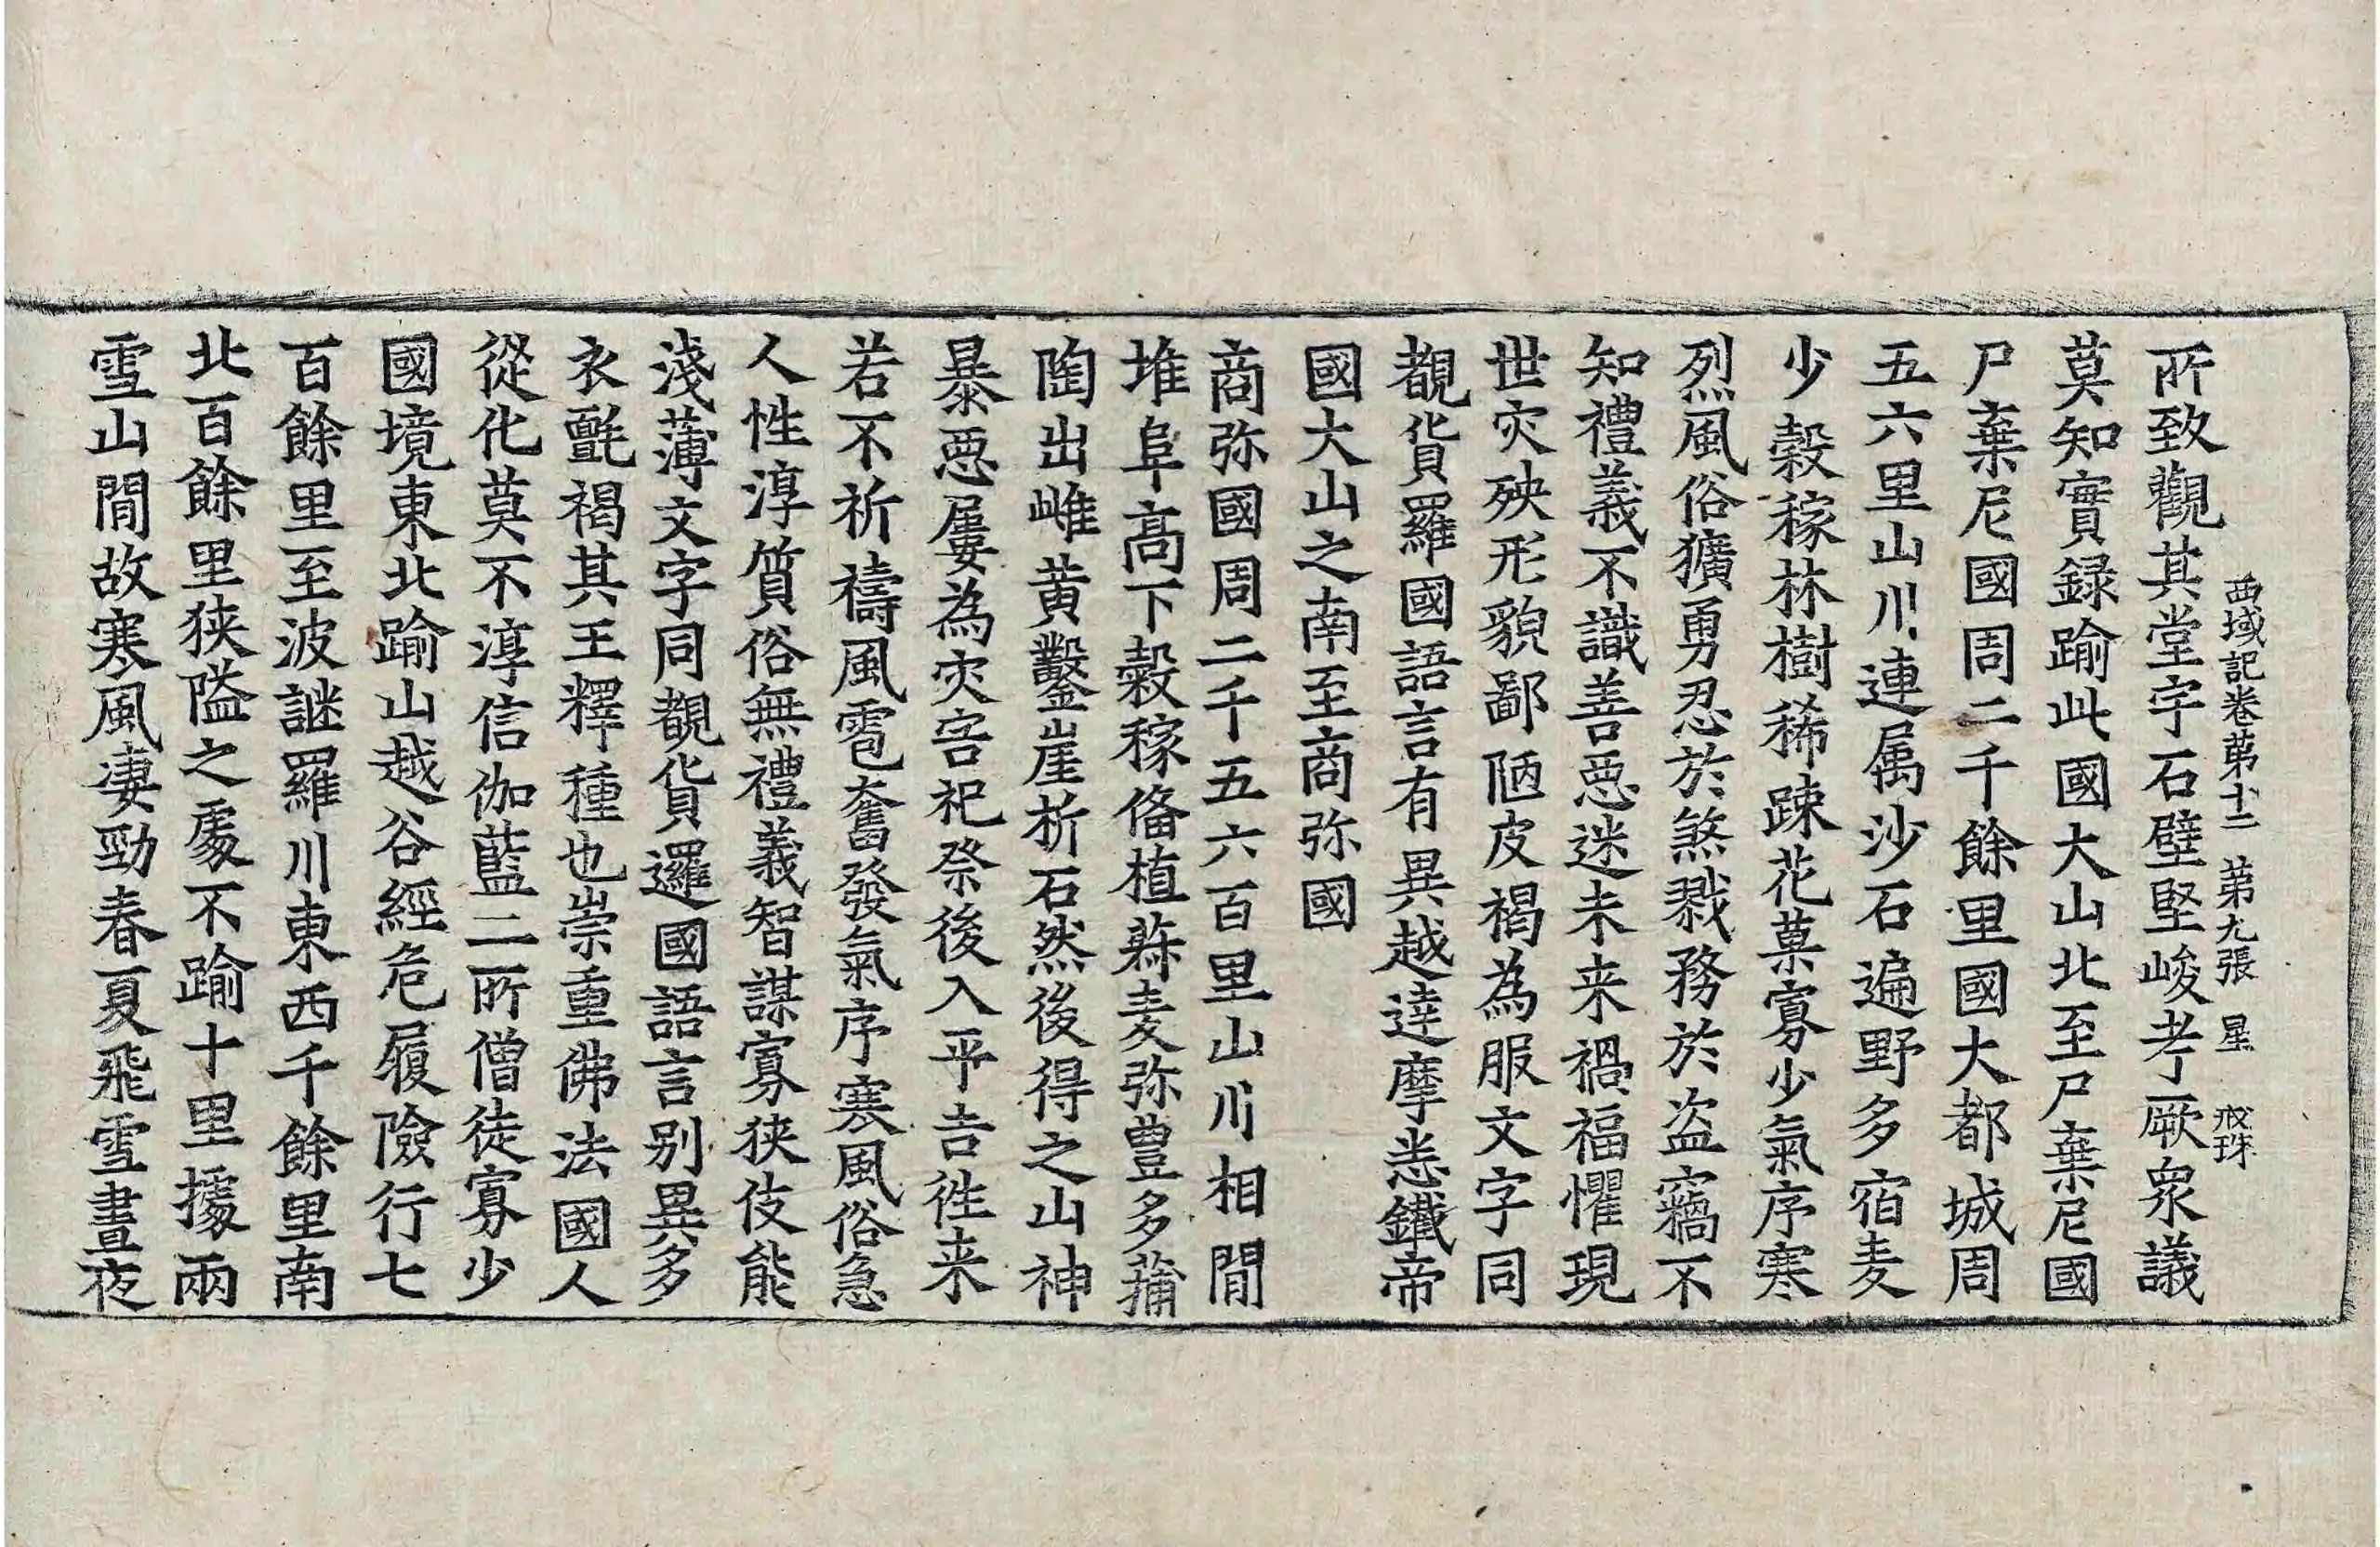 西域記卷苐十二 苐九張 星 戒珠
所致觀其堂宇石壁堅峻考厥衆議
莫知實録踰此國大山北至尸棄尼國
尸棄尼國周二千餘里國大都城周
五六里山川連属沙石遍野多宿麦
少穀稼林樹稀踈花菓寡少氣序寒
烈風俗獷勇忍於煞戮務於盜竊不
知禮義不識善惡迷未来禍福懼現
世灾殃形貌鄙陋皮褐為服文字同
覩貨羅國語言有異越達摩悉鐵帝
國大山之南至商弥國
商弥國周二千五六百里山川相閒
堆阜高下穀稼俻植菽麦弥豊多蒱
陶出雌黄鑿崖析石然後得之山神
暴惡屢為灾害祀祭後入平吉徃来
若不祈禱風雹奮發氣序寒風俗急
人性淳質俗無禮義智謀寡狹伎能
淺薄文字同覩貨邏國語言別異多
衣㲲褐其王釋種也崇重佛法國人
從化莫不淳信伽藍二所僧徒寡少
國境東北踰山越谷經危履險行七
百餘里至波謎羅川東西千餘里南
北百餘里狹隘之處不踰十里據兩
雪山閒故寒風凄勁春夏飛雪晝夜